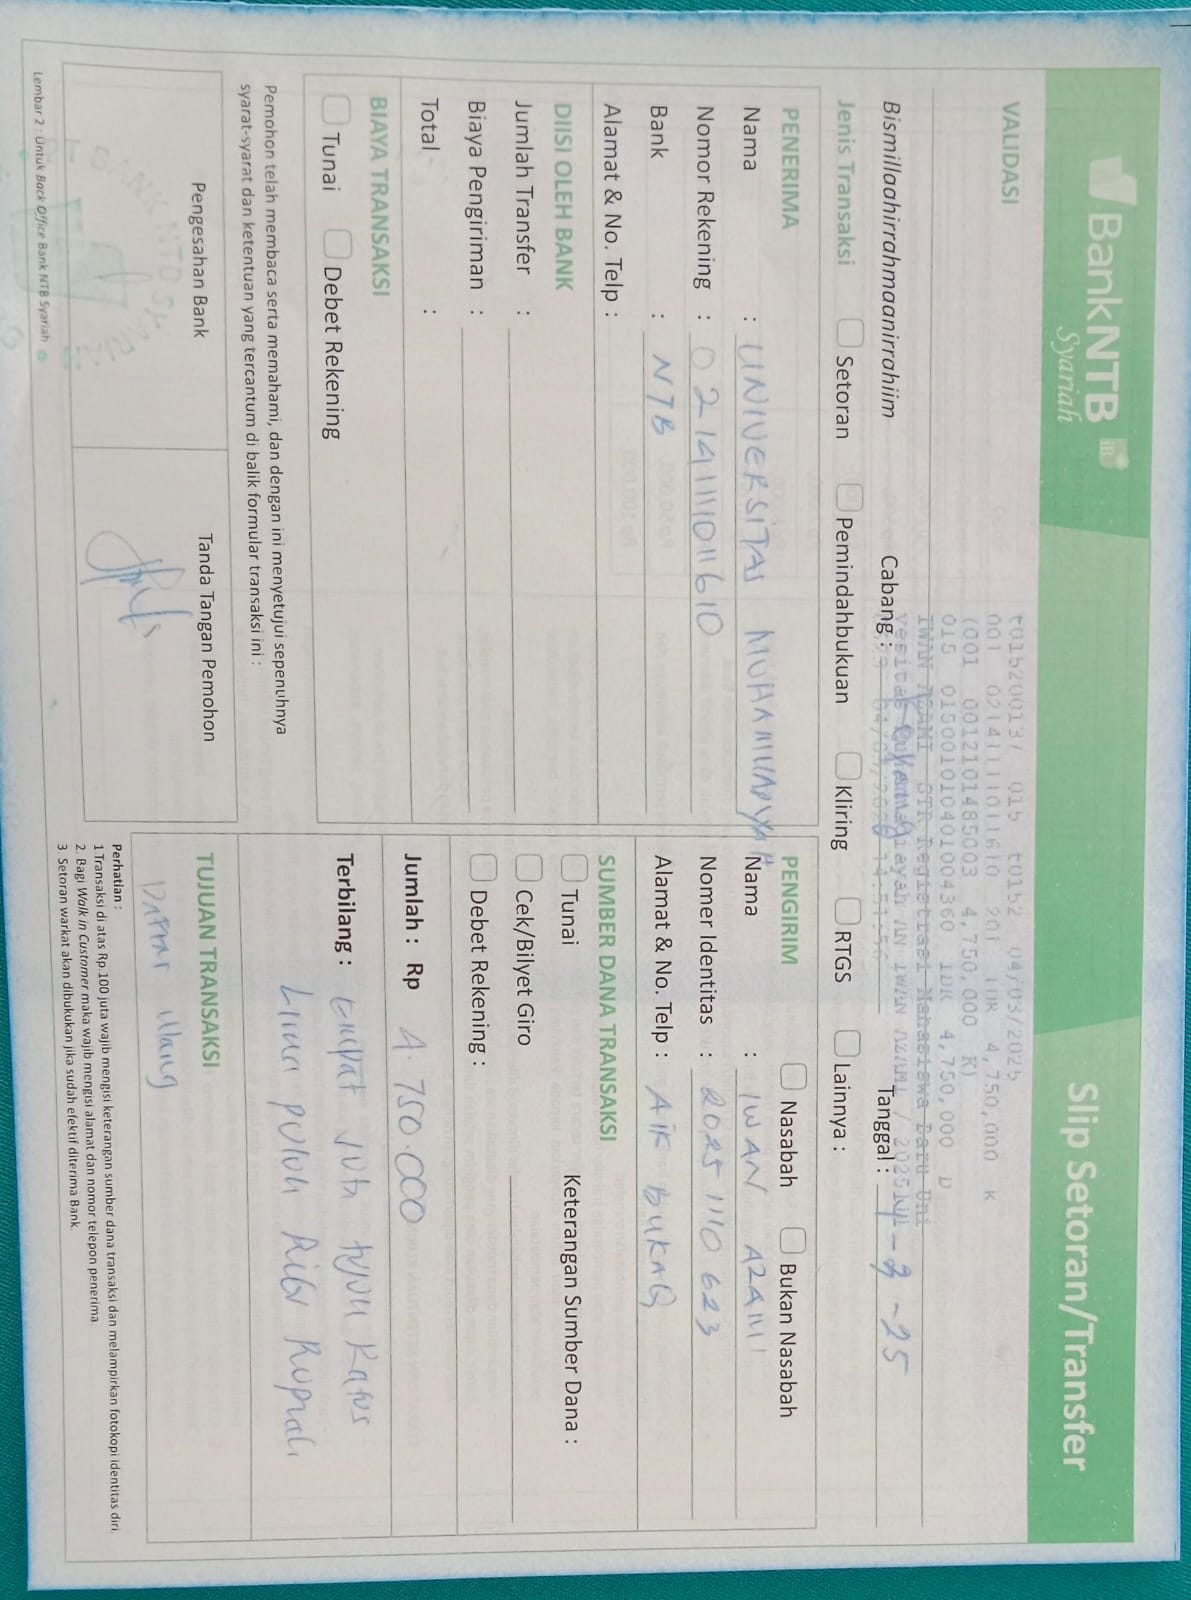 BankNTB
Syariah
Slip Setoran/Transfer
VALIDASI
015 04/03/2025
001 0214111011610 201 IDR 4,750,000 K
(001 0012101485003 4,750,000 K)
015 0150010104001004360 IDR 4,750,000 D
IWAN AZAMI STR Registrasi Mahasiswa Baru Uni
AN IWAN AZAMI / 2025
14:51:56
Bismillaahirrahmaanirrahiim
Cabang :
Tanggal : 4 - 3 - 25
Jenis Transaksi
Setoran
Pemindahbukuan
Kliring
RTGS
Lainnya :
PENERIMA
Nama : UNIVERSITAS MUHAMMADYAH
Nomor Rekening : 0214111011610
Bank : NTB
Alamat & No. Telp :
PENGIRIM
Nasabah
Bukan Nasabah
Nama : IWAN AZAMI
Nomer Identitas : 20251110623
Alamat & No. Telp : AIK BUKAQ
DIISI OLEH BANK
Jumlah Transfer :
Biaya Pengiriman :
Total :
SUMBER DANA TRANSAKSI
Tunai
Keterangan Sumber Dana :
Cek/Bilyet Giro
Debet Rekening :
BIAYA TRANSAKSI
Tunai
Debet Rekening
Jumlah : Rp 4.750.000
Terbilang : Empat Juta tujuh Ratus
Lima puluh Ribu Rupiah
Pemohon telah membaca serta memahami, dan dengan ini menyetujui sepenuhnya
syarat-syarat dan ketentuan yang tercantum di balik formular transaksi ini :
Pengesahan Bank
Tanda Tangan Pemohon
TUJUAN TRANSAKSI
Daftar Ulang
Perhatian :
1 Transaksi di atas Rp.100 juta wajib mengisi keterangan sumber dana transaksi dan melampirkan fotokopi identitas diri.
2. Bagi Walk in Customer maka wajib mengisi alamat dan nomor telepon penerima
3. Setoran warkat akan dibukukan jika sudah efektif diterima Bank.
Lembar 2 : Untuk Back Office Bank NTB Syariah